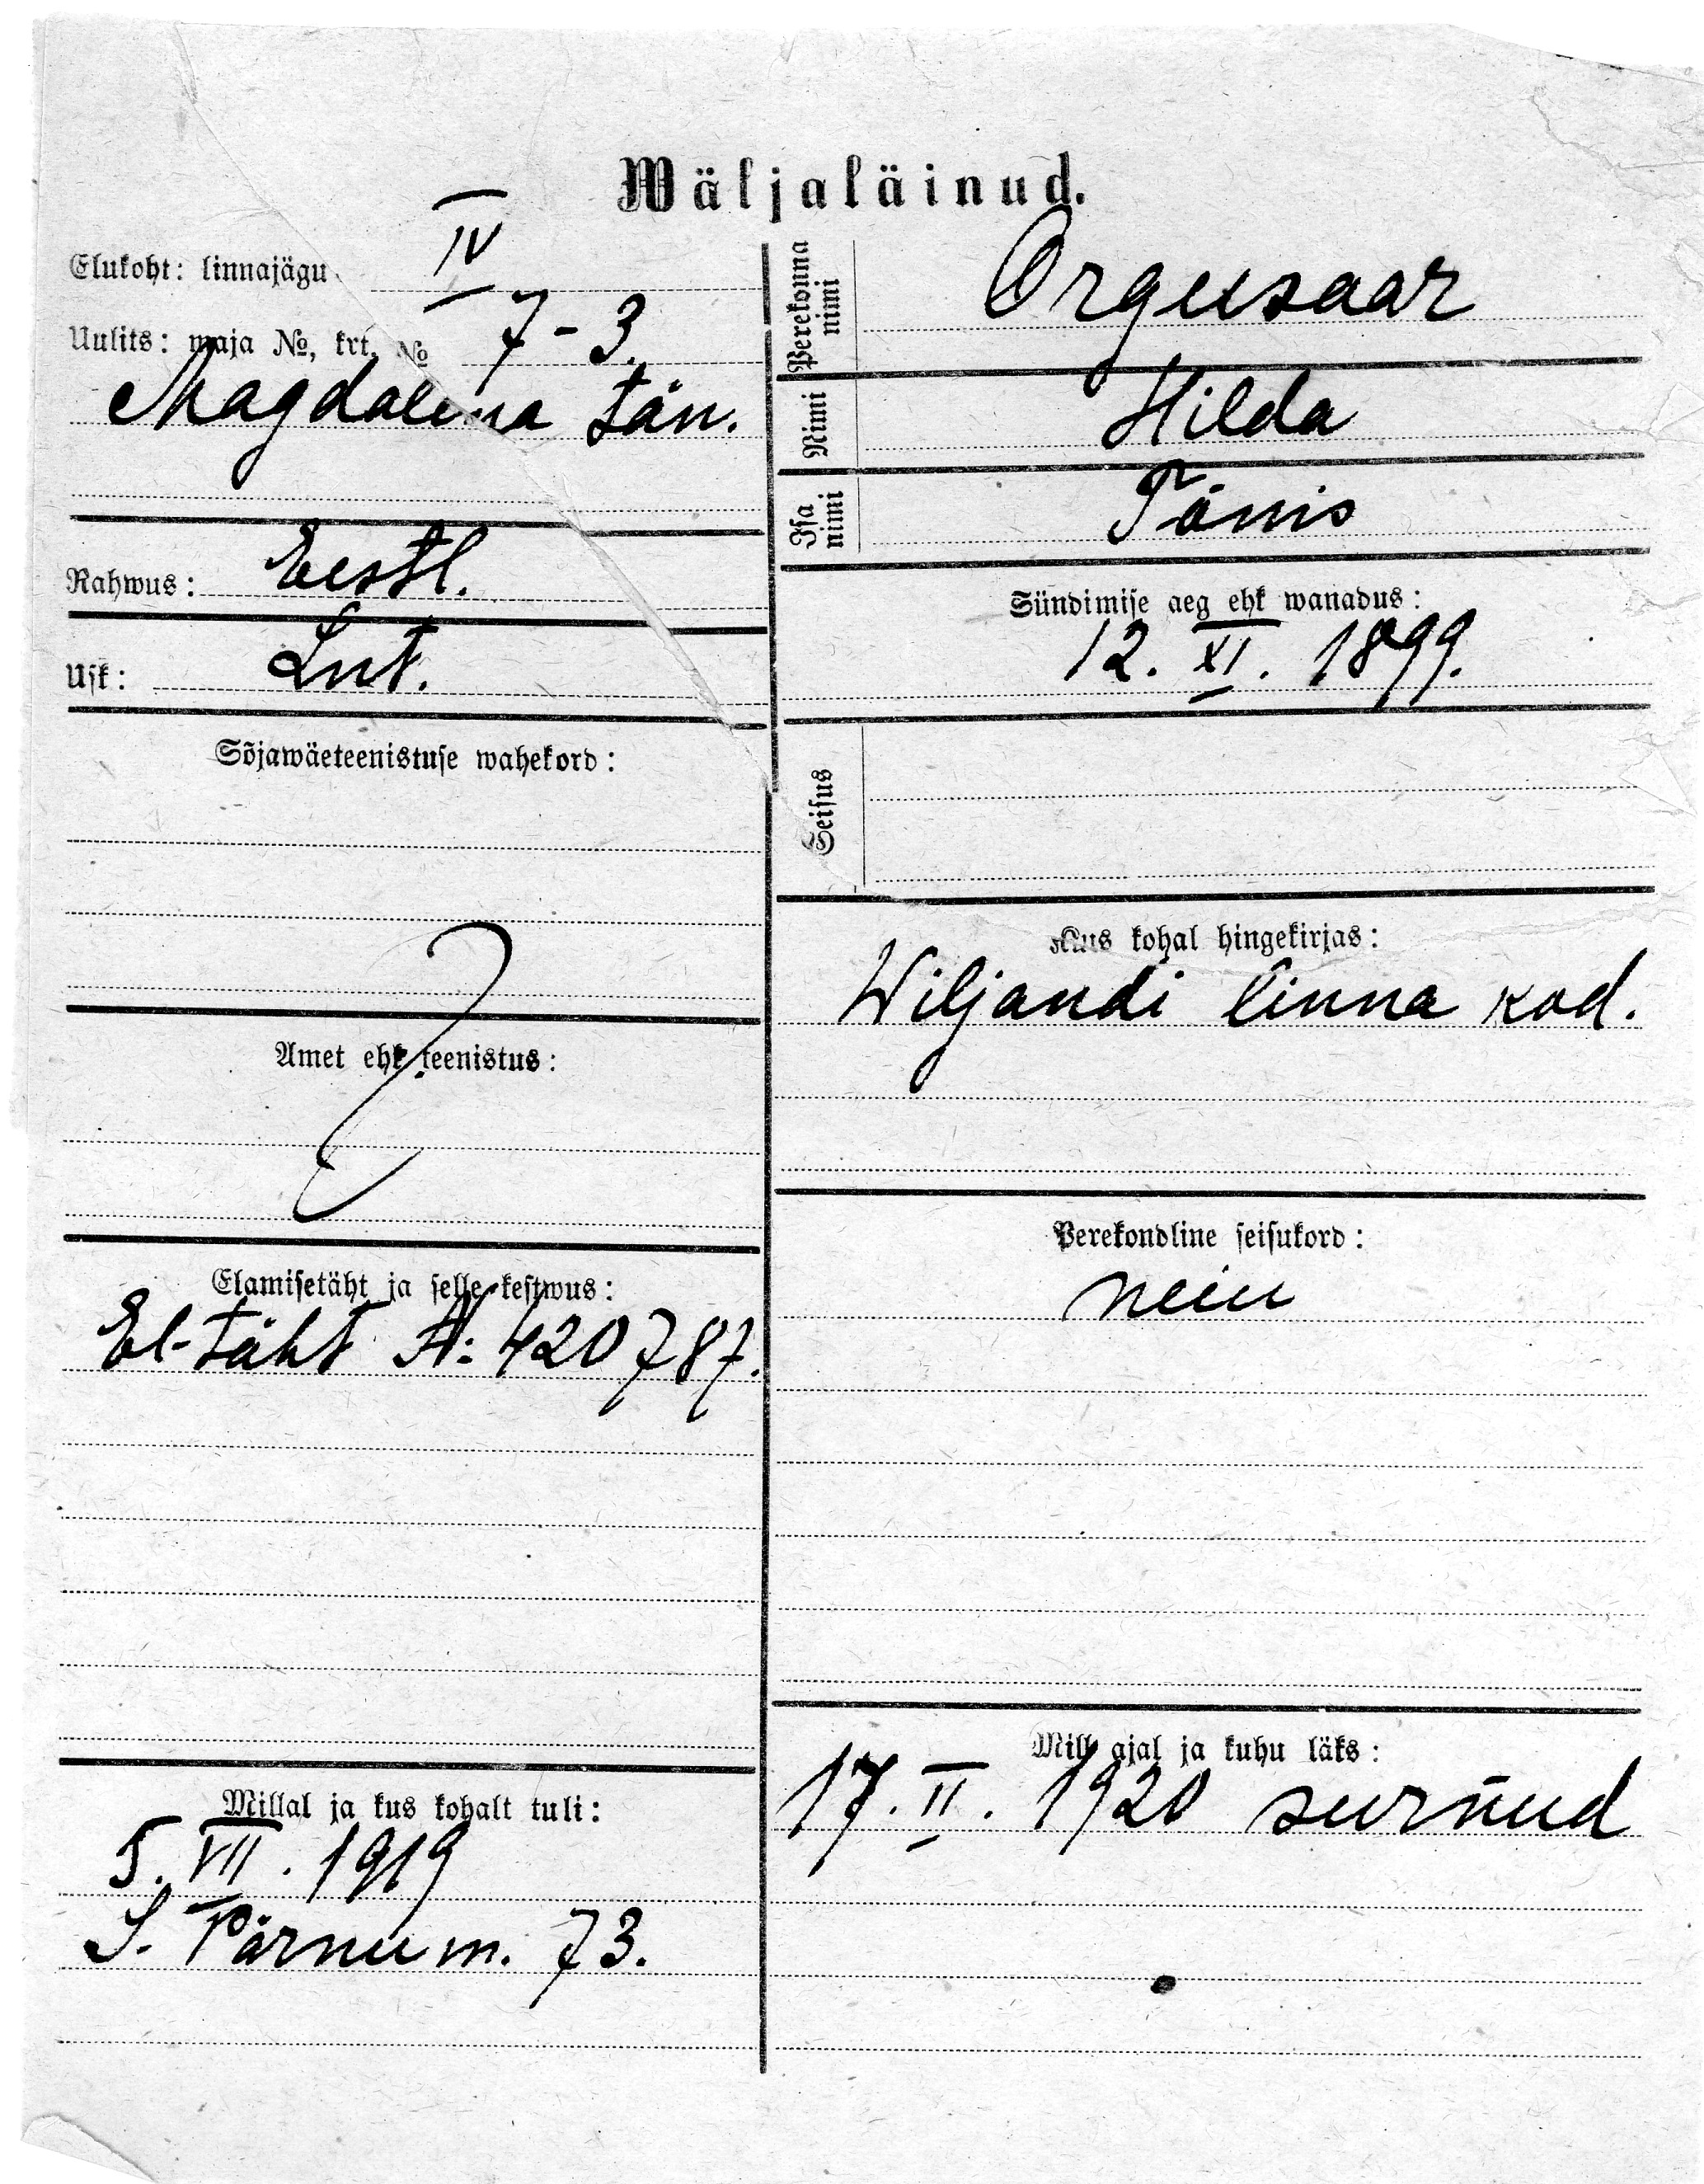 Wäljaläinud.
Elukoht: linnajägu IV
Uulits: maja №, krt. № 7-3.
Magdaleena tän.
Rahwus: Eestl.
Usk: Lut.
Sõjawäeteenistuse wahekord:
Amet ehk teenistus:
Elamisetäht ja selle kestwus:
El-täht №: 420787.
Millal ja kus kohalt tuli:
5. VII. 1919
S. Pärnu m. 73.
Perekonna nimi Orgusaar
Nimi Hilda
Isa nimi Tõnis
Sündimise aeg ehk wanadus:
12. XI. 1899.
Seisus
Kus kohal hingekirjas:
Wiljandi linna kod.
Perekondline seisukord:
neiu
Mill ajal ja kuhu läks:
17. II. 1920 surnud